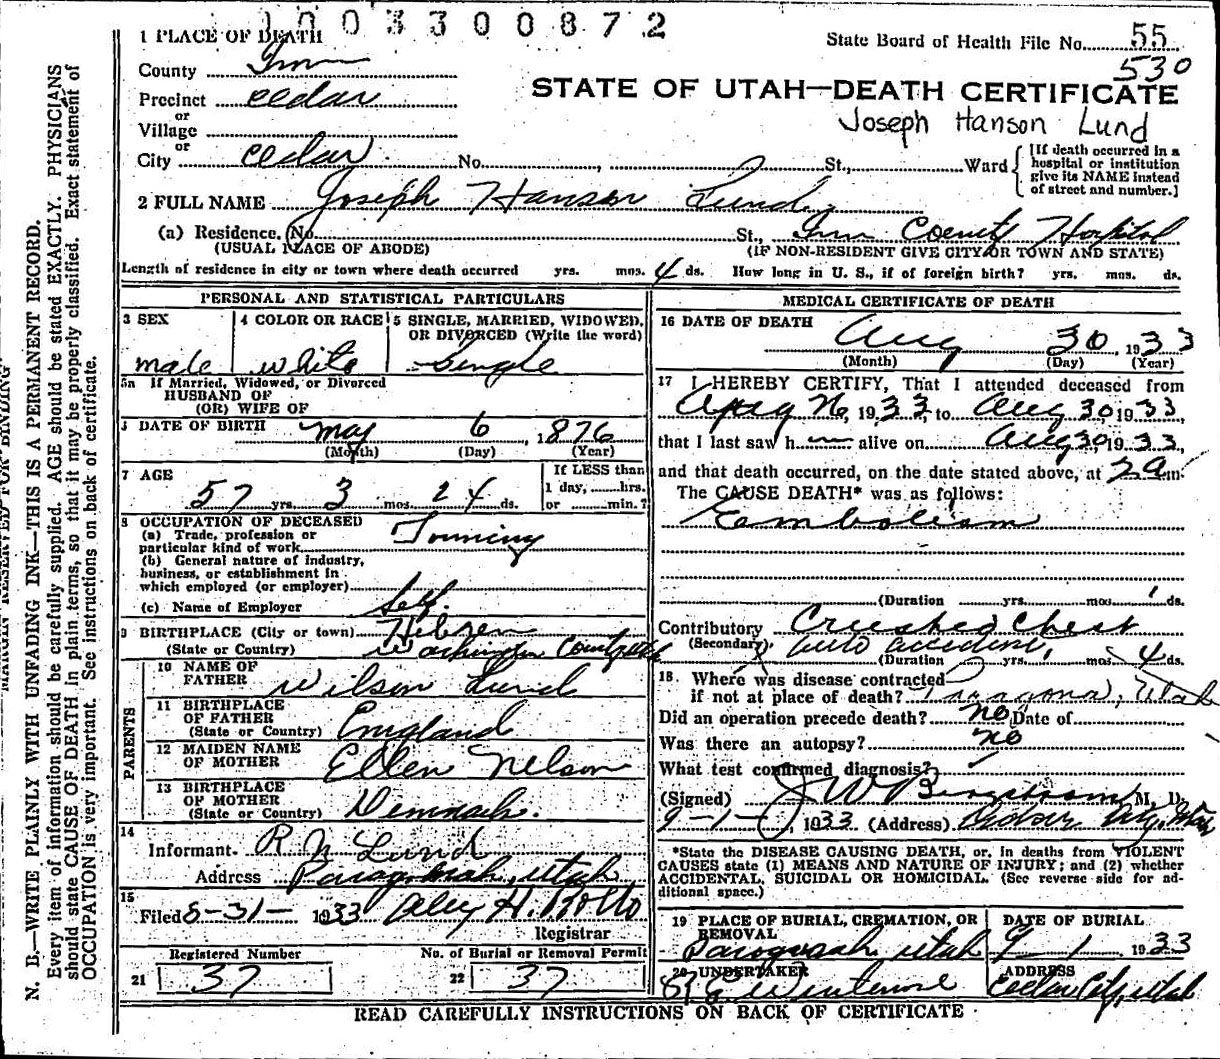 1003300872
1 PLACE OF DEATH
State Board of Health File No. 55
530
County Iron
STATE OF UTAH—DEATH CERTIFICATE
Precinct cedar
or
Joseph Hanson Lund
Village
or
City cedar No. St., Ward
[If death occurred in a
hospital or institution
give its NAME instead
of street and number.]
2 FULL NAME Joseph Hanson Lund
(a) Residence. (No. St., Iron County Hospital
(USUAL PLACE OF ABODE) (IF NON-RESIDENT GIVE CITY OR TOWN AND STATE)
Length of residence in city or town where death occurred yrs. mos. 4 ds. How long in U. S., if of foreign birth? yrs. mos. ds.
PERSONAL AND STATISTICAL PARTICULARS
3 SEX
male
4 COLOR OR RACE
white
5 SINGLE, MARRIED, WIDOWED,
OR DIVORCED (Write the word)
Single
5a If Married, Widowed, or Divorced
HUSBAND OF
(OR) WIFE OF
DATE OF BIRTH May 6, 1876
(Month) (Day) (Year)
7 AGE
57 yrs. 3 mos. 24 ds.
If LESS than
1 day, hrs.
or min.?
8 OCCUPATION OF DECEASED
(a) Trade, profession or
particular kind of work
(b) General nature of industry,
business, or establishment in
which employed (or employer)
(c) Name of Employer Self.
9 BIRTHPLACE (City or town) Hebron
(State or Country) Washington County Utah
PARENTS
10 NAME OF
FATHER Wilson Lund
11 BIRTHPLACE
OF FATHER
(State or Country) England
12 MAIDEN NAME
OF MOTHER Ellen Nelson
13 BIRTHPLACE
OF MOTHER
(State or Country) Denmark.
14
Informant. R N Lund
Address Paragonah, Utah
15
Filed 8-31- 1933 Alex H. Rollo
Registrar
Registered Number
21 37
No. of Burial or Removal Permit
22 37
MEDICAL CERTIFICATE OF DEATH
16 DATE OF DEATH
Aug 30, 1933
(Month) (Day) (Year)
17 I HEREBY CERTIFY, That I attended deceased from
, 1933, to Aug 30, 1933,
that I last saw h alive on Aug 30, 1933,
and that death occurred, on the date stated above, at 2 a m.
The CAUSE DEATH* was as follows:
Embolism
(Duration yrs. mos. 1 ds.
Contributory Crushed Chest
(Secondary) auto accident,
(Duration yrs. mos. 4 ds.
18. Where was disease contracted
if not at place of death? Paragonah, Utah
Did an operation precede death? no Date of
Was there an autopsy? no
What test confirmed diagnosis?
(Signed) J W Bergstrom M. D.
9-1-, 1933 (Address) Cedar City, Utah
*State the DISEASE CAUSING DEATH, or, in deaths from VIOLENT
CAUSES state (1) MEANS AND NATURE OF INJURY; and (2) whether
ACCIDENTAL, SUICIDAL OR HOMICIDAL. (See reverse side for ad-
ditional space.)
19 PLACE OF BURIAL, CREMATION, OR
REMOVAL
Paragonah, Utah
DATE OF BURIAL
9-1 1933
20 UNDERTAKER
ADDRESS
Cedar City, Utah
READ CAREFULLY INSTRUCTIONS ON BACK OF CERTIFICATE
MARGIN RESERVED FOR BINDING
N. B.—WRITE PLAINLY WITH UNFADING INK—THIS IS A PERMANENT RECORD.
Every item of information should be carefully supplied. AGE should be stated EXACTLY. PHYSICIANS
should state CAUSE OF DEATH in plain terms, so that it may be properly classified. Exact statement of
OCCUPATION is very important. See instructions on back of certificate.